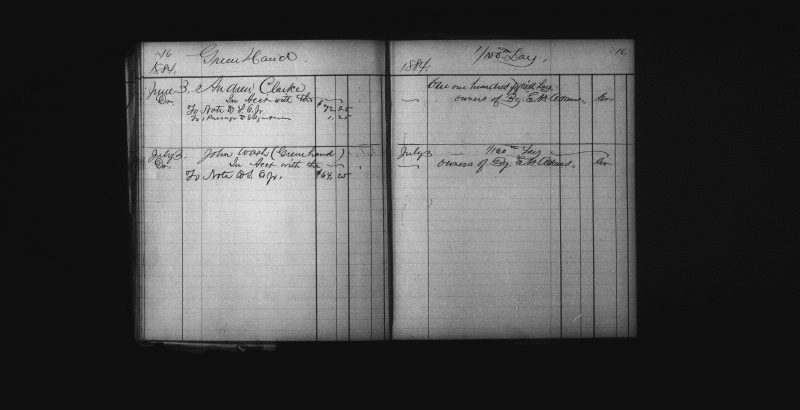 16 Green Hand.
1884.
June 3. Andrew Clarke
Dr. In Acct with the
To Note to S. C. Jr $72.25
To 1 Passage to 1.25
July 3. John Wash (Greenhand)
Dr. In Acct with the
To Note to S. C. Jr. $64.25
1/150th Lay. 16
1884.
One one hundred fiftieth Lay
owners of Bg. E. H. Adams. Cr
July 3 1/160th Lay
owners of Bg. E. H. Adams. Cr